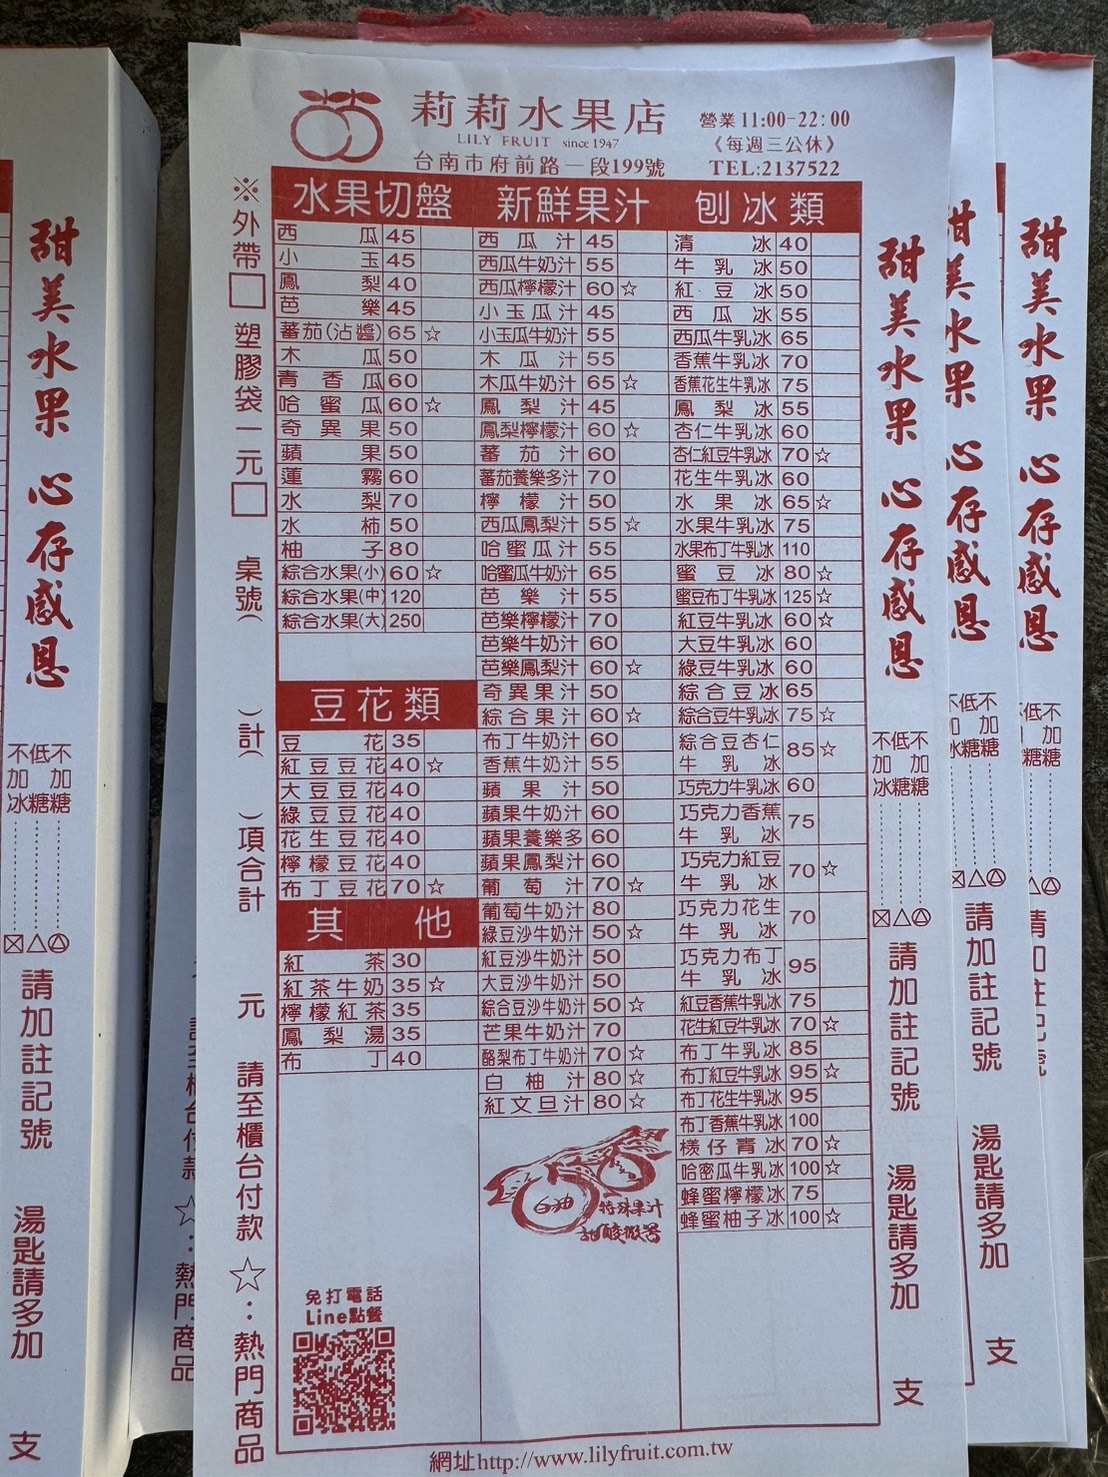 莉莉水果店
LILY FRUIT since 1947
台南市府前路一段199號
營業11:00-22:00
《每週三公休》
TEL:2137522
※外帶□ 塑膠袋一元□ 桌號( )計( )項合計 元 請至櫃台付款 ☆:熱門商品
水果切盤
西瓜 45
小玉 45
鳳梨 40
芭樂 45
蕃茄(沾醬) 65 ☆
木瓜 50
青香瓜 60
哈蜜瓜 60 ☆
奇異果 50
蘋果 50
蓮霧 60
水梨 70
水柿 50
柚子 80
綜合水果(小) 60 ☆
綜合水果(中) 120
綜合水果(大) 250
豆花類
豆花 35
紅豆豆花 40 ☆
大豆豆花 40
綠豆豆花 40
花生豆花 40
檸檬豆花 40
布丁豆花 70 ☆
其他
紅茶 30
紅茶牛奶 35 ☆
檸檬紅茶 35
鳳梨湯 35
布丁 40
免打電話
Line點餐
新鮮果汁
西瓜汁 45
西瓜牛奶汁 55
西瓜檸檬汁 60 ☆
小玉瓜汁 45
小玉瓜牛奶汁 55
木瓜汁 55
木瓜牛奶汁 65 ☆
鳳梨汁 45
鳳梨檸檬汁 60 ☆
蕃茄汁 60
蕃茄養樂多汁 70
檸檬汁 50
西瓜鳳梨汁 55 ☆
哈蜜瓜汁 55
哈蜜瓜牛奶汁 65
芭樂汁 55
芭樂檸檬汁 70
芭樂牛奶汁 60
芭樂鳳梨汁 60 ☆
奇異果汁 50
綜合果汁 60 ☆
布丁牛奶汁 60
香蕉牛奶汁 55
蘋果汁 50
蘋果牛奶汁 60
蘋果養樂多 60
蘋果鳳梨汁 60
葡萄汁 70 ☆
葡萄牛奶汁 80
綠豆沙牛奶汁 50 ☆
紅豆沙牛奶汁 50
大豆沙牛奶汁 50
綜合豆沙牛奶汁 50 ☆
芒果牛奶汁 70
酪梨布丁牛奶汁 70 ☆
白柚汁 80 ☆
紅文旦汁 80 ☆
白柚
特殊果汁
刨冰類
清冰 40
牛乳冰 50
紅豆冰 50
西瓜冰 55
西瓜牛乳冰 65
香蕉牛乳冰 70
香蕉花生牛乳冰 75
鳳梨冰 55
杏仁牛乳冰 60
杏仁紅豆牛乳冰 70 ☆
花生牛乳冰 60
水果冰 65 ☆
水果牛乳冰 75
水果布丁牛乳冰 110
蜜豆冰 80 ☆
蜜豆布丁牛乳冰 125 ☆
紅豆牛乳冰 60 ☆
大豆牛乳冰 60
綠豆牛乳冰 60
綜合豆冰 65
綜合豆牛乳冰 75 ☆
綜合豆杏仁
牛乳冰 85 ☆
巧克力牛乳冰 60
巧克力香蕉
牛乳冰 75
巧克力紅豆
牛乳冰 70 ☆
巧克力花生
牛乳冰 70
巧克力布丁
牛乳冰 95
紅豆香蕉牛乳冰 75
花生紅豆牛乳冰 70 ☆
布丁牛乳冰 85
布丁紅豆牛乳冰 95 ☆
布丁花生牛乳冰 95
布丁香蕉牛乳冰 100
檨仔青冰 70 ☆
哈密瓜牛乳冰 100 ☆
蜂蜜檸檬冰 75
蜂蜜柚子冰 100 ☆
網址http://www.lilyfruit.com.tw
甜美水果 心存感恩
不加糖
低糖
不加冰
請加註記號
湯匙請多加 支
甜美水果 心存感恩
不加糖
低糖
不加冰
請加註記號
湯匙請多加 支
甜美水果 心存感恩
不加糖
低糖
請加註記號
湯匙請多加 支
甜美水果 心存感恩
不加糖
低糖